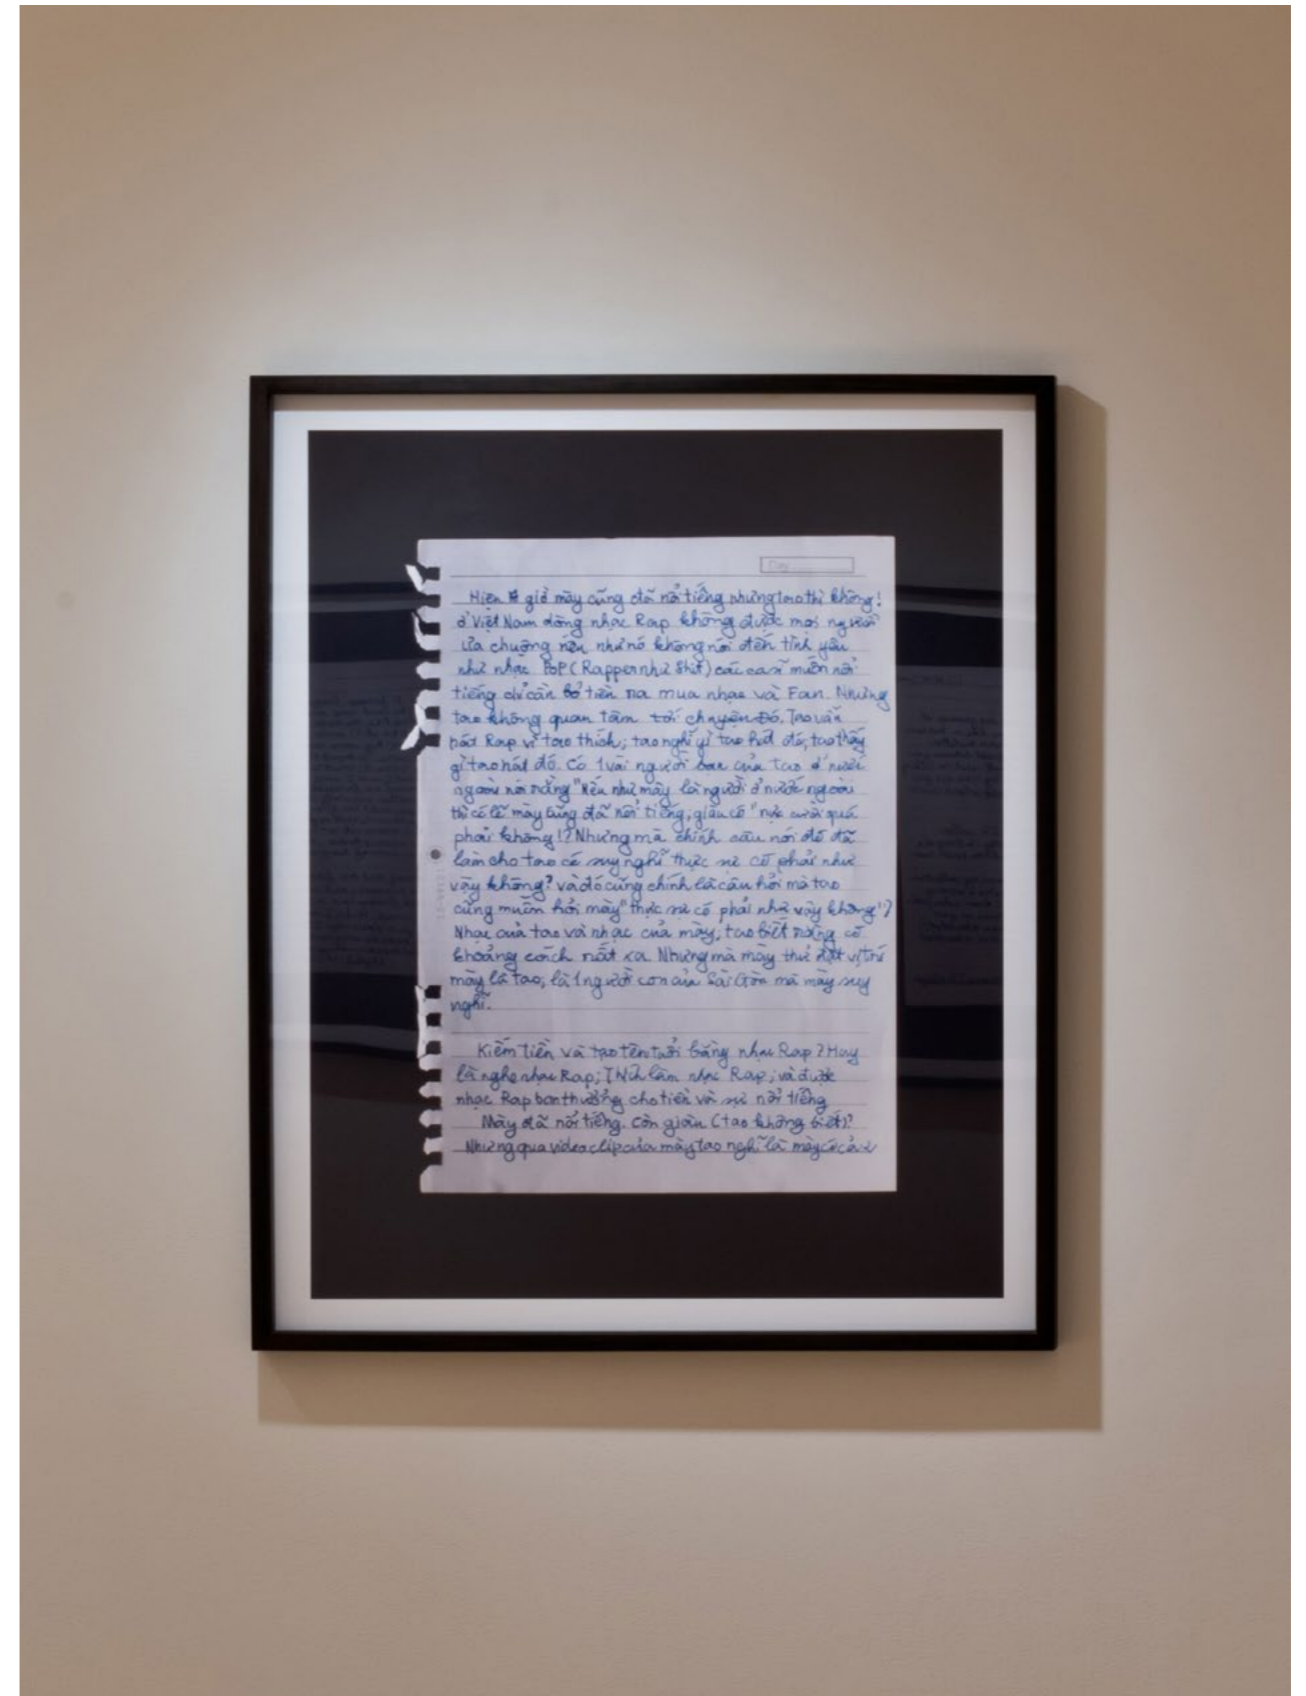 Day
Hiện giờ mày cũng đã nổi tiếng nhưng tao thì không!
ở Việt Nam dòng nhạc Rap không được mọi người
ưa chuộng nếu như nó không nói đến tình yêu
như nhạc POP (Rapper như Shit) các ca sĩ muốn nổi
tiếng chỉ cần bỏ tiền ra mua nhạc và Fan. Nhưng
tao không quan tâm tới chuyện đó. Tao vẫn
hát Rap vì tao thích; tao nghĩ gì tao hát đó, tao thấy
gì tao hát đó. Có 1 vài người bạn của tao ở nước
ngoài nói rằng "Nếu như mày là người ở nước ngoài
thì có lẽ mày cũng đã nổi tiếng, giàu có" nực cười quá
phải không!? Nhưng mà chính câu nói đó đã
làm cho tao có suy nghĩ thực sự có phải như
vậy không? và đó cũng chính là câu hỏi mà tao
cũng muốn hỏi mày "thực sự có phải như vậy không"?
Nhạc của tao và nhạc của mày, tao biết rằng có
khoảng cách rất xa. Nhưng mà mày thử đặt vị trí
mày là tao, là 1 người con của Sài Gòn mà mày suy
nghĩ.
Kiếm tiền và tạo tên tuổi bằng nhạc Rap? Hay
là nghe nhạc Rap; Thích làm nhạc Rap; và được
nhạc Rap ban thưởng cho tiền và sự nổi tiếng
Mày đã nổi tiếng. Còn giàu (tao không biết)?
Nhưng qua video clip của mày tao nghĩ là mày có cả 2